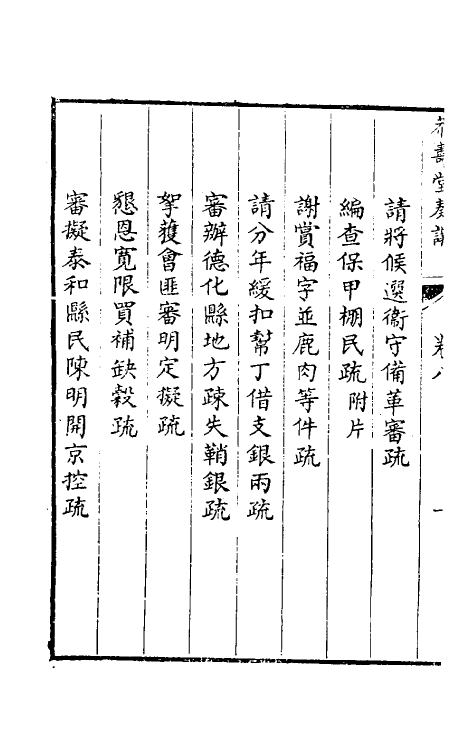 壽堂奏議
卷八
一
請將候選衞守備革審疏
編查保甲棚民疏附片
謝賞福字並鹿肉等件疏
請分年緩扣幫丁借支銀兩疏
審辦德化縣地方疎失鞘銀疏
拏獲會匪審明定擬疏
懇恩寬限買補缺穀疏
審擬泰和縣民陳明開京控疏